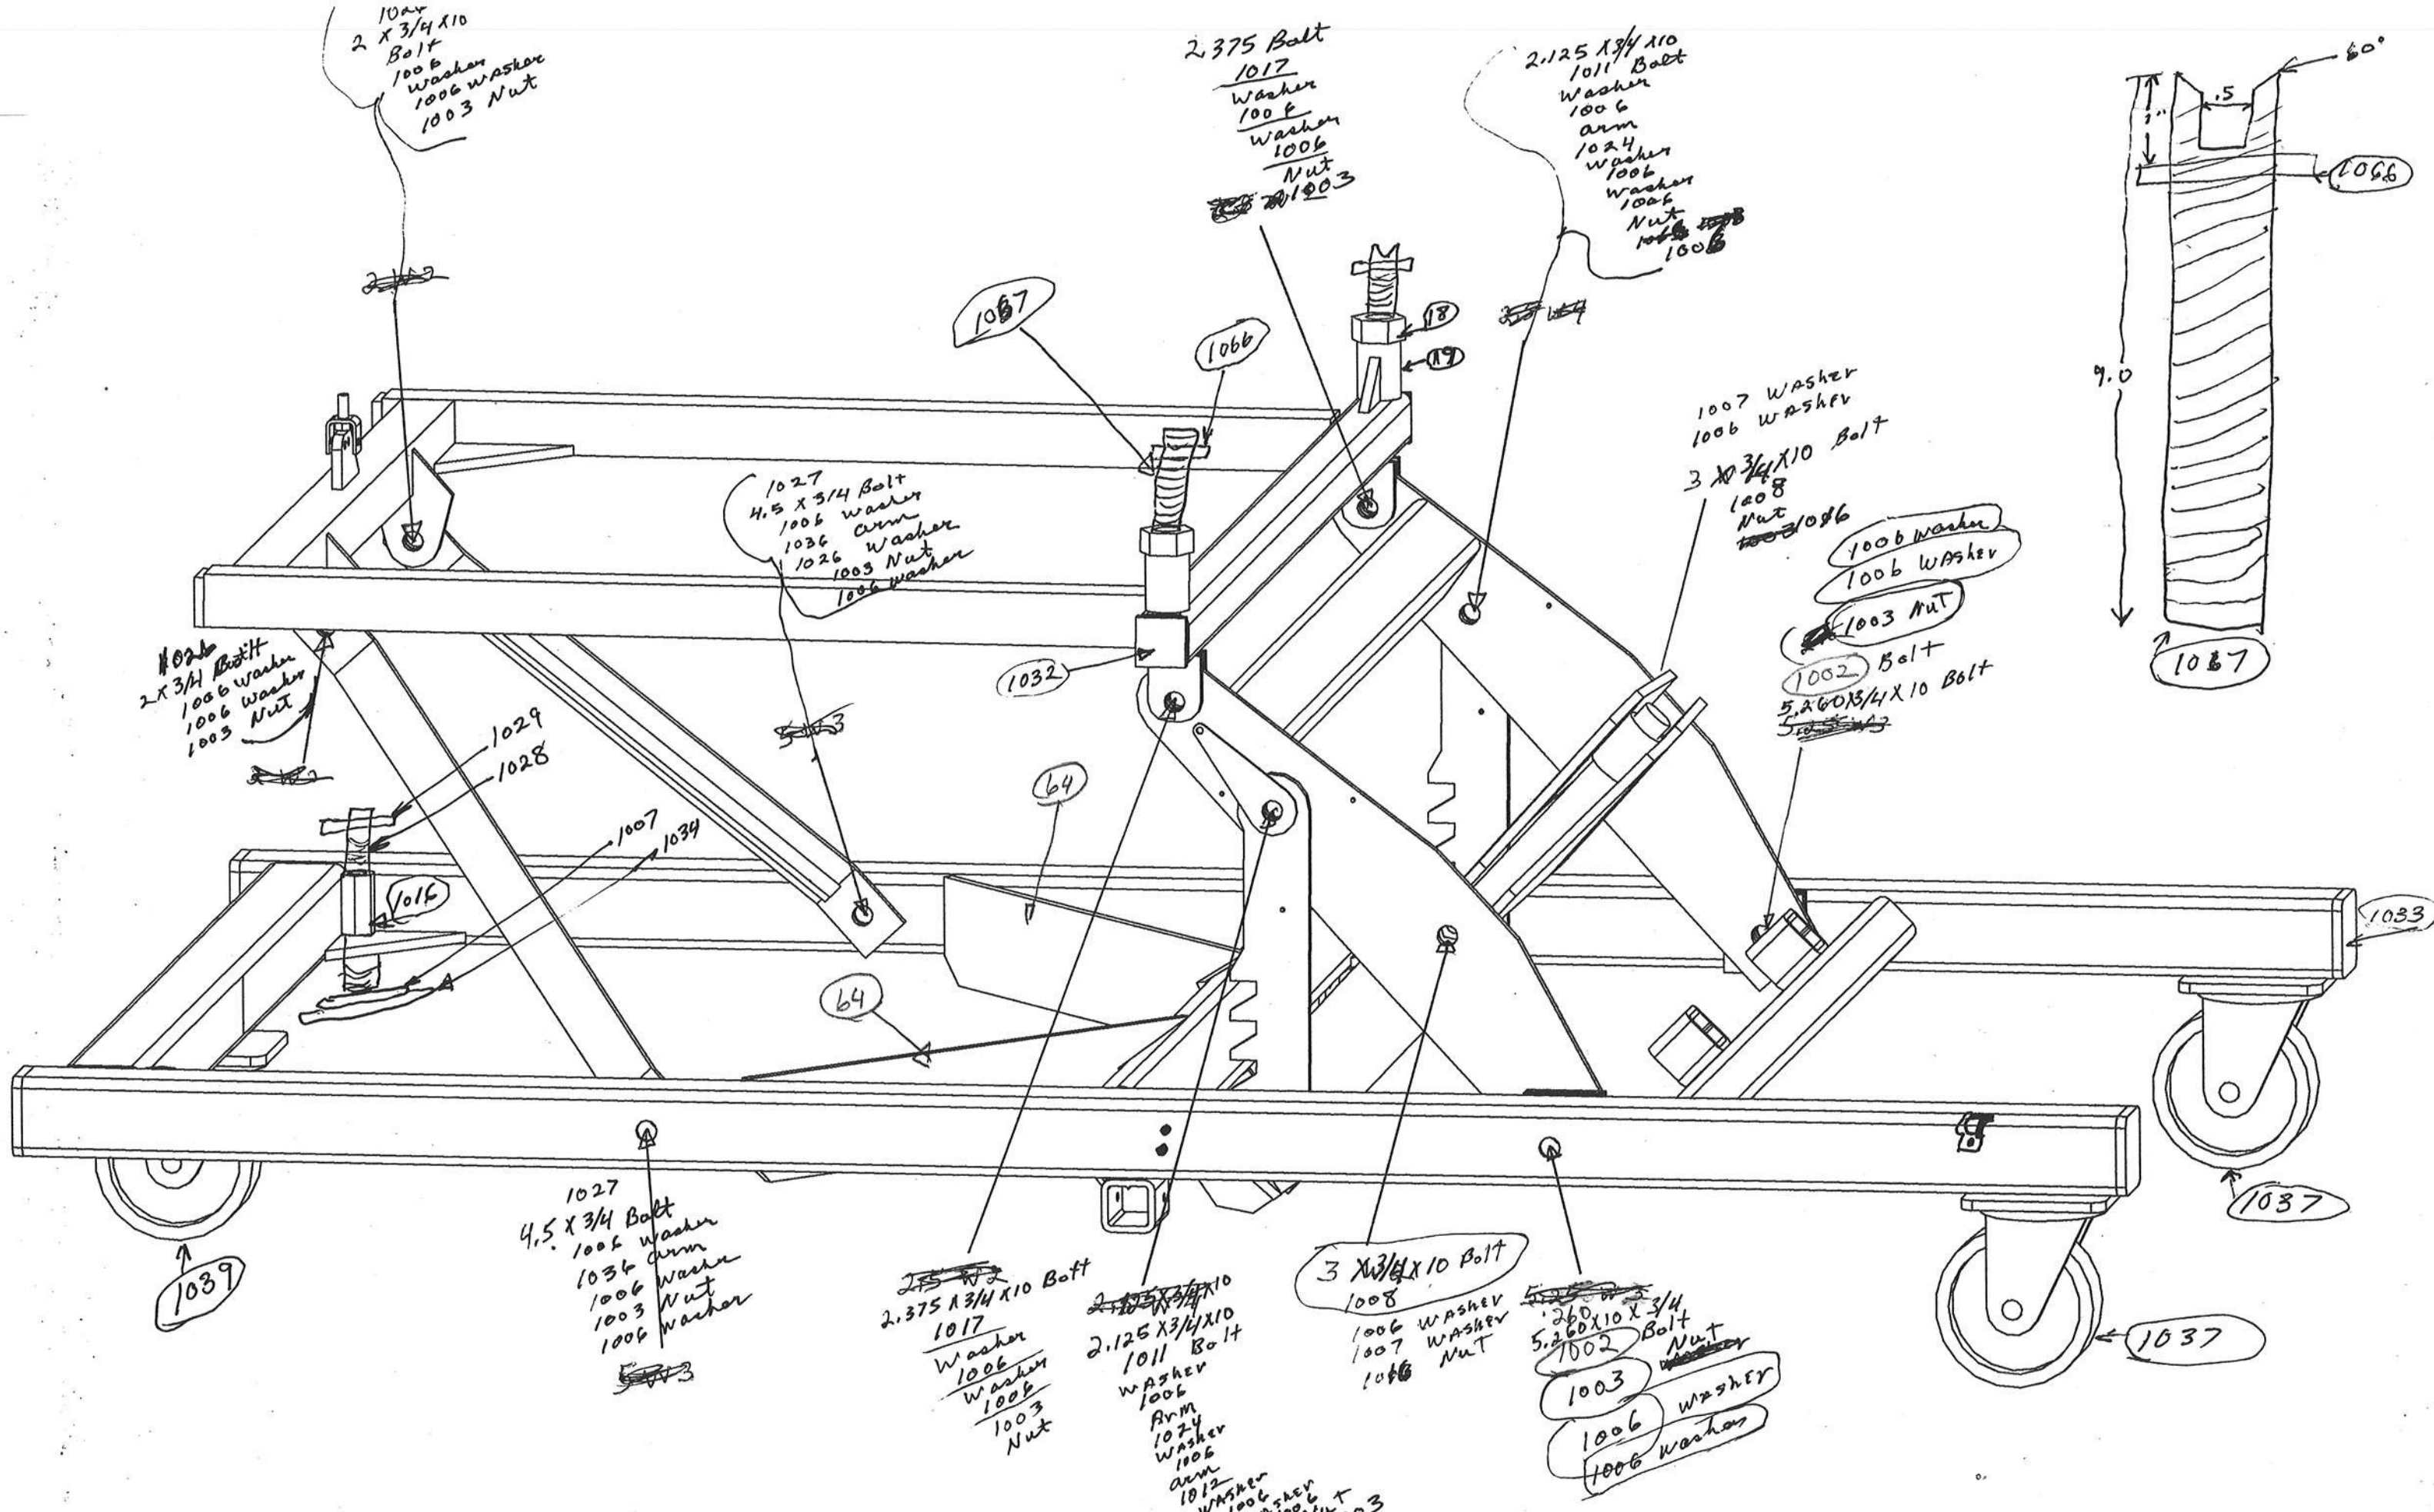 2 x 3/4 x10
Bolt
1006
washer
1006 washer
1003 Nut
2.375 Bolt
1017
Washer
1006
Washer
1006
Nut
1003
2.125 x3/4 x10
1011 Bolt
Washer
1006
arm
1024
Washer
1006
Washer
1006
Nut
60°
.5
1"
1066
9.0
1067
1067
1066
18
19
1007 WASHER
1006 WASHER
3 x 3/4 x10 Bolt
1008
Nut
1006 washer
1006 WASHER
1003 NUT
1002 Bolt
5.260x3/4 x 10 Bolt
1027
4.5 x 3/4 Bolt
1006 washer
1036 arm
1026 washer
1003 Nut
1006 washer
1026
2 x 3/4 Bolt
1006 washer
1006 washer
1003 Nut
1032
1029
1028
1007
1034
1016
64
64
1033
1037
1037
1039
1027
4.5 x 3/4 Bolt
1006 washer
1036 arm
1006 washer
1003 Nut
1006 washer
2.375 x 3/4 x 10 Bolt
1017
Washer
1006
Washer
1006
1003
Nut
2.125 x3/4x10
1011 Bolt
WASHER
1006
Arm
1024
WASHER
1006
arm
1012
WASHER
1006
3 x3/4 x 10 Bolt
1008
1006 WASHER
1007 WASHER
NUT
.260
5.260x10 x 3/4
1002 Bolt
1003 Nut
1006 WASHER
1006 washer